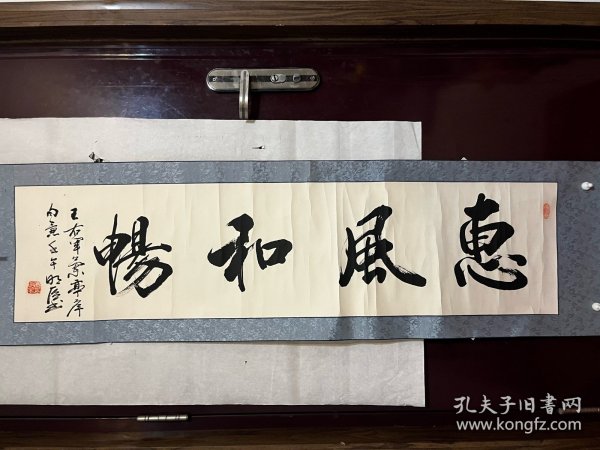 惠風和暢
王右軍蘭亭序
句意 壬午 明辰書
孔夫子旧書网
www.kongfz.com